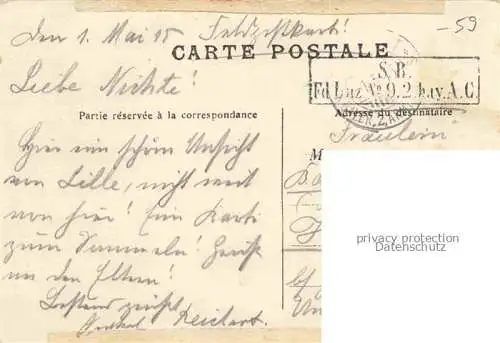 Den 1. Mai 15 Feldpostkarte!
-59
CARTE POSTALE
Liebe Nichte!
S. B.
Fd. Laz. No 9. 2. bay. A. C.
Partie réservée à la correspondance
Adresse du destinataire
Fräulein
M
Hier eine schöne Ansicht
von Lille, nicht weit
von hier! Eine Karte
zum Sammeln! Grüße
an den Eltern!
Bestens grüßt
Onkel Reichert.
privacy protection
Datenschutz